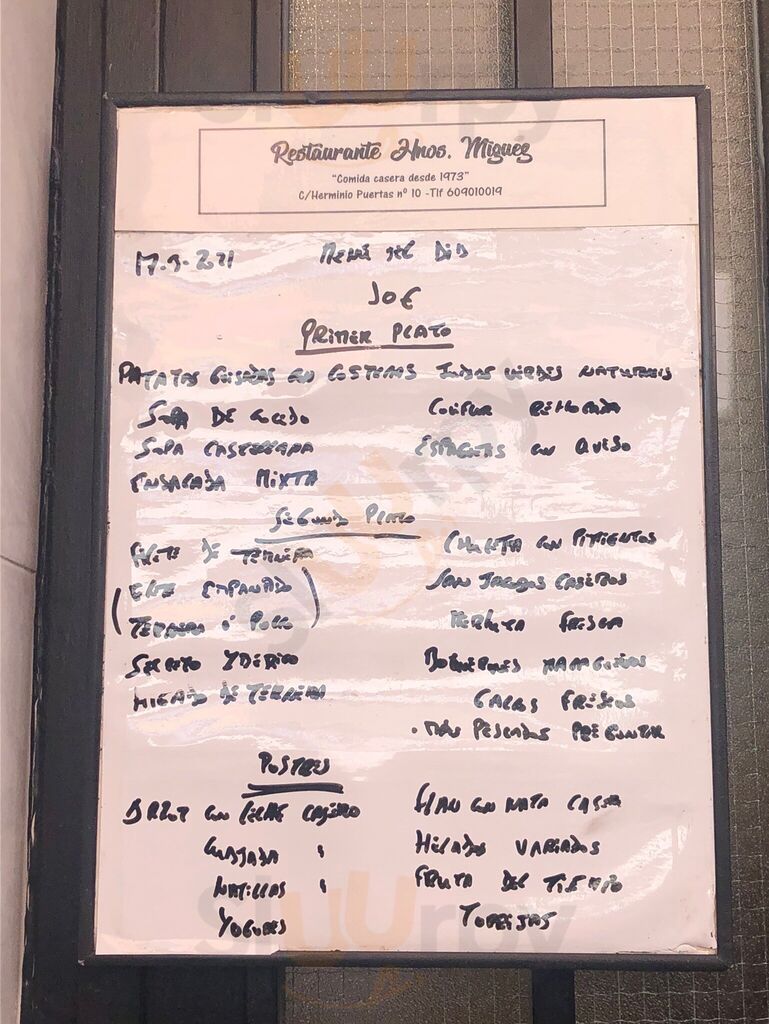 Restaurante Hnos. Miguez
"Comida casera desde 1973"
C/Herminio Puertas nº 10 -Tlf 609010019
MENÚ DEL DÍA
10€
PRIMER PLATO
PATATAS GUISADAS CON COSTILLAS JUDÍAS VERDES NATURALES
SOPA DE COCIDO COLIFLOR REHOGADA
SOPA CASTELLANA ESPAGUETIS CON QUESO
ENSALADA MIXTA
SEGUNDO PLATO
FILETE DE TERNERA CHULETA CON PIMIENTOS
FILETE EMPANADO SAN JACOBOS CASEROS
TERNERA O POLLO MERLUZA FRESCA
SECRETO YBÉRICO BOQUERONES
HIGADO DE TERNERA GALLOS FRESCOS
. MAS PESCADOS PREGUNTAR
POSTRES
ARROZ CON LECHE CASERO FLAN CON NATA CASA
CUAJADA " HELADOS VARIADOS
NATILLAS " FRUTA DEL TIEMPO
YOGURES TORRIJAS
Sluurpy